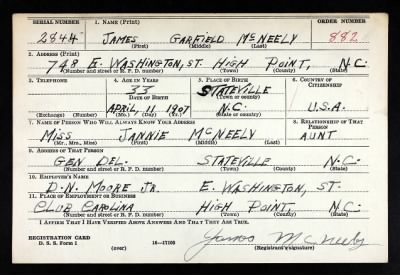 SERIAL NUMBER 1. NAME (Print) ORDER NUMBER
2844 JAMES GARFIELD McNEELY 882
(First) (Middle) (Last)
2. ADDRESS (Print)
748 E. WASHINGTON, ST. HIGH POINT, N.C.
(Number and street or R. F. D. number) (Town) (County) (State)
3. TELEPHONE 4. AGE IN YEARS 5. PLACE OF BIRTH 6. COUNTRY OF CITIZENSHIP
33 STATEVILLE
DATE OF BIRTH (Town or county)
APRIL, 11, 1907 N.C. U.S.A.
(Exchange) (Number) (Mo.) (Day) (Yr.) (State or country)
7. NAME OF PERSON WHO WILL ALWAYS KNOW YOUR ADDRESS 8. RELATIONSHIP OF THAT PERSON
MISS JANNIE McNEELY AUNT
(Mr., Mrs., Miss) (First) (Middle) (Last)
9. ADDRESS OF THAT PERSON
GEN DEL. STATEVILLE N.C.
(Number and street or R. F. D. number) (Town) (County) (State)
10. EMPLOYER'S NAME
D.N. MOORE JR. E. WASHINGTON, ST.
11. PLACE OF EMPLOYMENT OR BUSINESS
CLUB CAROLINA HIGH POINT, N.C.
(Number and street or R. F. D. number) (Town) (County) (State)
I AFFIRM THAT I HAVE VERIFIED ABOVE ANSWERS AND THAT THEY ARE TRUE.
REGISTRATION CARD
D. S. S. Form 1 (over) 16—17105 James McNeely
(Registrant's signature)